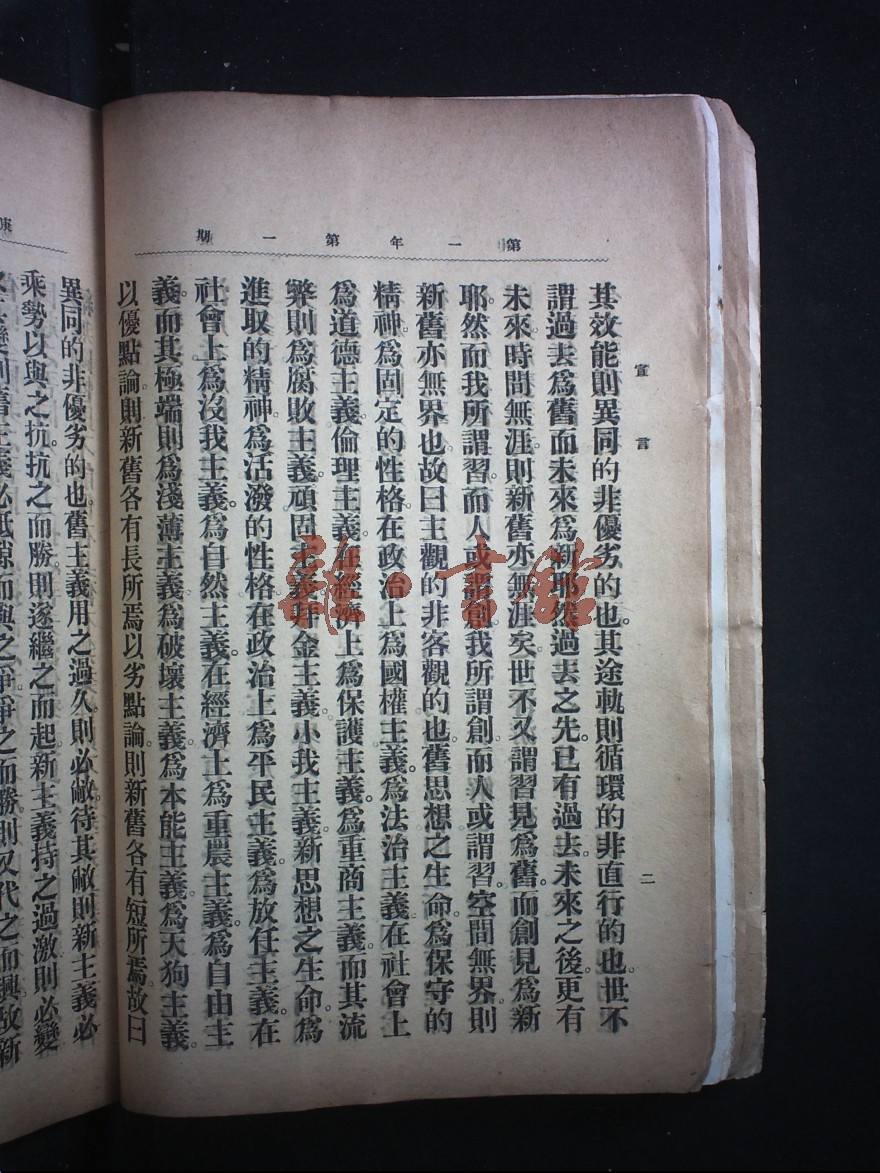 第一年第一期
宣言
二
其效能則異同的非優劣的也。其途軌則循環的非直行的也。世不
謂過去爲舊而未來爲新耶然過去之先。已有過去。未來之後。更有
未來。時間無涯。則新舊亦無涯矣。世不又謂習見爲舊。而創見爲新
耶。然而我所謂習。而人或謂創。我所謂創。而人或謂習。空間無界。則
新舊亦無界也。故曰主觀的非客觀的也。舊思想之生命。爲保守的
精神。爲固定的性格。在政治上爲國權主義。爲法治主義。在社會上
爲道德主義。倫理主義。在經濟上爲保護主義。爲重商主義。而其流
弊則爲腐敗主義。頑固主義。拜金主義。小我主義。新思想之生命。爲
進取的精神。爲活潑的性格。在政治上爲平民主義。爲放任主義。在
社會上爲沒我主義。爲自然主義。在經濟上爲重農主義。爲自由主
義。而其極端則爲淺薄主義。爲破壞主義。爲本能主義。爲天狗主義。
以優點論。則新舊各有長所焉。以劣點論。則新舊各有短所焉。故曰
異同的非優劣的也。舊主義用之過久。則必敝。待其敝。則新主義必
乘勢以與之抗。抗之而勝。則遂繼之而起。新主義持之過激。則必變
則舊主義必抵隙而與之爭。爭之而勝。則又代之而興。故新
龍·書館